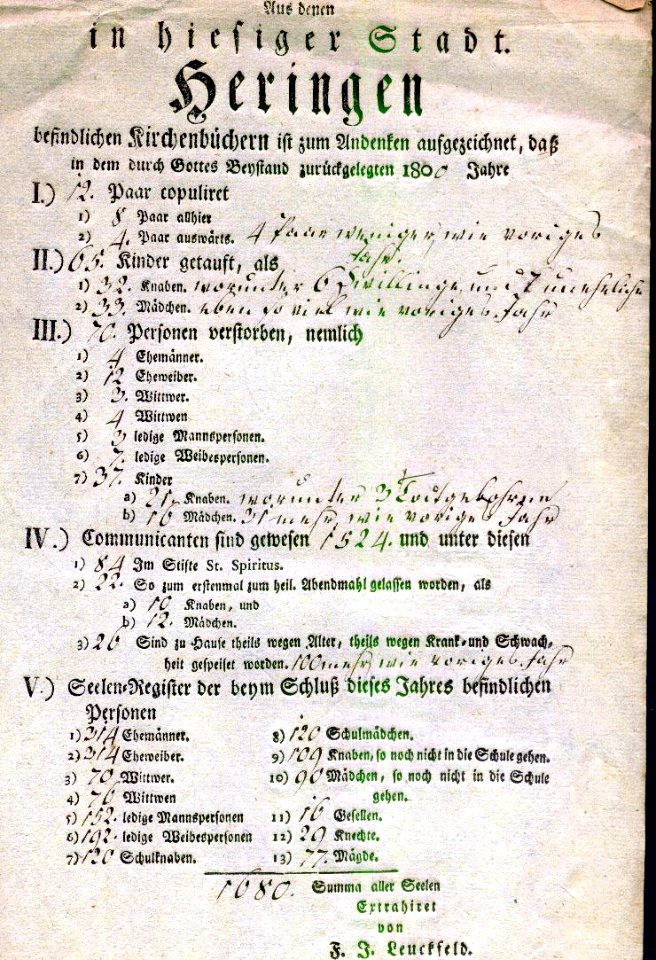 Aus denen
in hiesiger Stadt.
Heringen
befindlichen Kirchenbüchern ist zum Andenken aufgezeichnet, daß
in dem durch Gottes Beystand zurückgelegten 1800 Jahre
I.) 12. Paar copuliret
1) 8 Paar allhier
2) 4. Paar auswärts. 4 Paar weniger, wie voriges
Jahr.
II.) 65. Kinder getauft, als
1) 32. Knaben. worunter 6 Zwillinge und 7 uneheliche
2) 33. Mädchen. eben so viel wie voriges Jahr
III.) 70. Personen verstorben, nemlich
1) 4 Ehemänner.
2) 12 Eheweiber.
3) 3. Wittwer.
4) 4 Wittwen
5) 3 ledige Mannspersonen.
6) 7. ledige Weibespersonen.
7) 37. Kinder
a) 21. Knaben. worunter 3 Todtgebohrne
b) 16 Mädchen. 31 mehr, wie voriges Jahr
IV.) Communicanten sind gewesen 1524. und unter diesen
1) 84 Im Stifte St. Spiritus.
2) 22. So zum erstenmal zum heil. Abendmahl gelassen worden, als
a) 10 Knaben, und
b) 12. Mädchen.
3) 26 Sind zu Hause theils wegen Alter, theils wegen Krank- und Schwach-
heit gespeiset worden. 100 mehr, wie voriges Jahr
V.) Seelen-Register der beym Schluß dieses Jahres befindlichen
Personen
1) 314 Ehemänner.
2) 314 Eheweiber.
3) 70 Wittwer.
4) 76 Wittwen
5) 152. ledige Mannspersonen
6) 192. ledige Weibespersonen
7) 120 Schulknaben.
8) 120 Schulmädchen.
9) 109 Knaben, so noch nicht in die Schule gehen.
10) 90 Mädchen, so noch nicht in die Schule
gehen.
11) 16 Gesellen.
12) 29 Knechte.
13) 77. Mägde.
1680. Summa aller Seelen
Extrahiret
von
F. J. Leuckfeld.